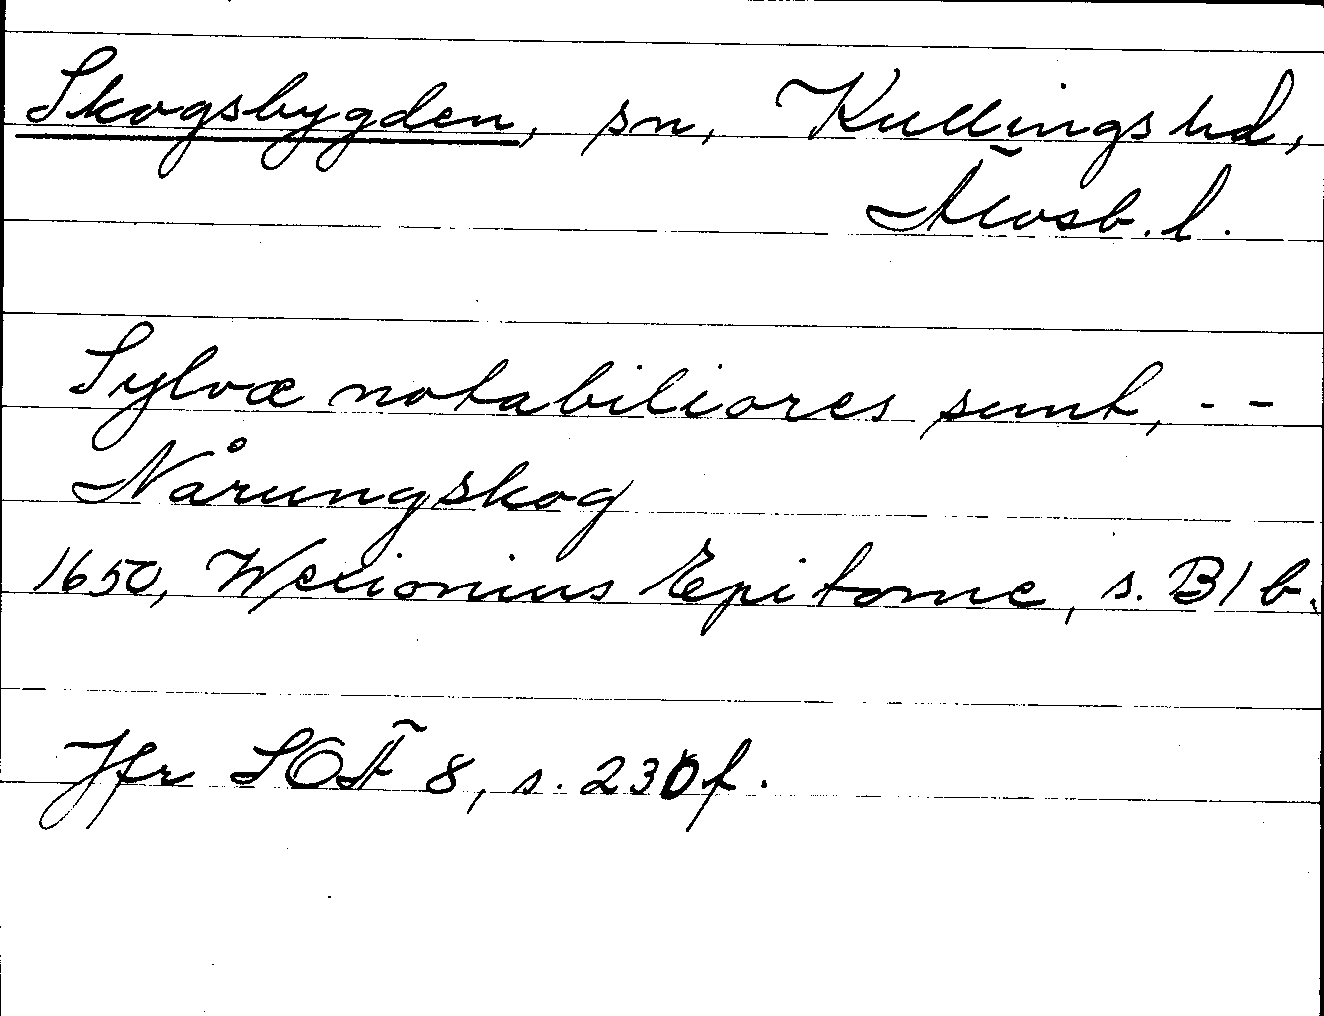 Skogsbygden, sn, Kullings hd,
Älvsb. l.
Sylvæ notabiliores sunt, --
Nårungskog
1650, Wexionius Epitome, s. B1b.
Jfr SOÄ 8, s. 230f.